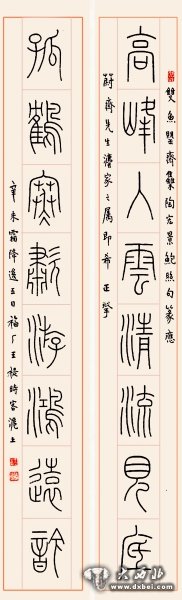 雙魚
齋集陶宏景鮑照句篆應
高峰入雲清流見底
蔚齋先生灋家之屬即希 正
孤鶴寒嘯游鴻遠訡
辛未霜降後五日福厂王禔時客滬上
大西北
www.dxbei.com